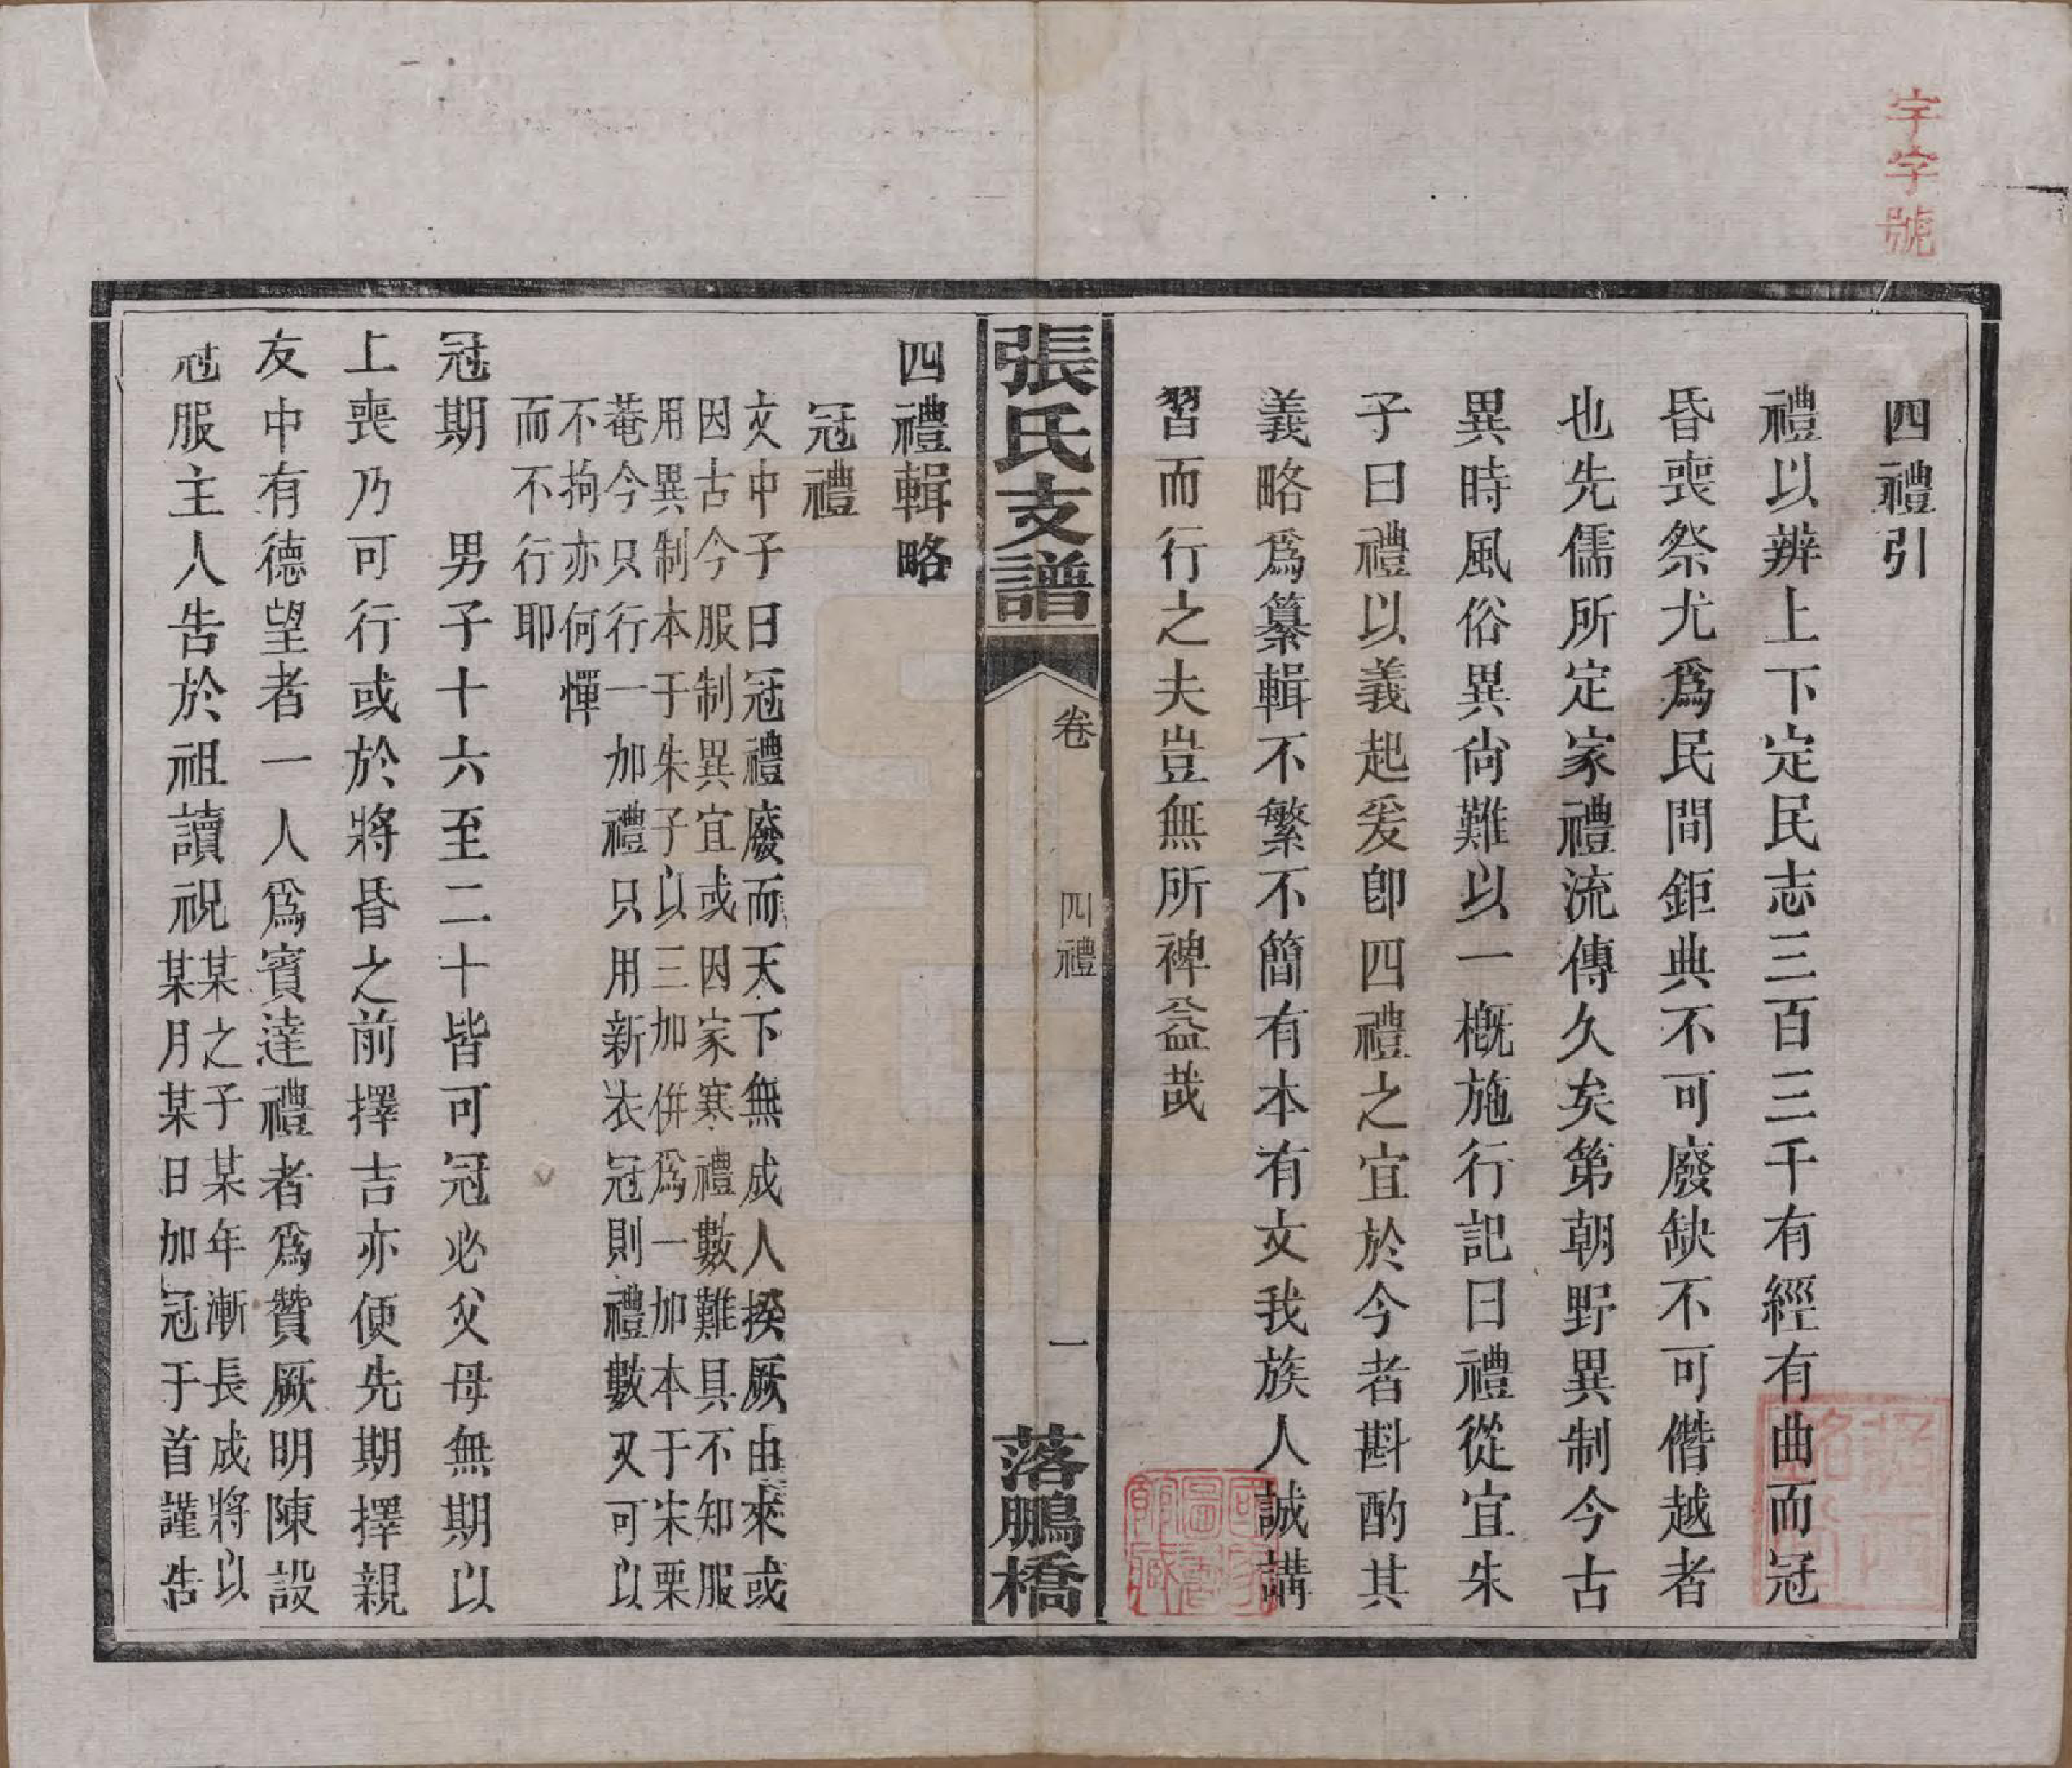 字字號
四禮引
禮以辨上下定民志三百三千有經有曲而冠
昏喪祭尤爲民間鉅典不可廢缺不可僭越者
也先儒所定家禮流傳久矣第朝野異制今古
異時風俗異尙難以一槪施行記曰禮從宜朱
子曰禮以義起爰卽四禮之宜於今者斟酌其
義略爲纂輯不繁不簡有本有文我族人誠講
習而行之夫豈無所裨益哉
國家圖書館藏
張氏支譜
卷
四禮
一
落鵬橋
四禮輯略
冠禮
文中子曰冠禮廢而天下無成人揆厥由來或
因古今服制異宜或因家寒禮數難具不知服
用異制本于朱子以三加併爲一加本于宋栗
菴今只行一加禮只用新衣冠則禮數又可以
不拘亦何憚
而不行耶
冠期 男子十六至二十皆可冠必父母無期以
上喪乃可行或於將昏之前擇吉亦便先期擇親
友中有德望者一人爲賓達禮者爲贊厥明陳設
冠服主人告於祖讀祝某之子某年漸長成將以
某月某日加冠于首謹告